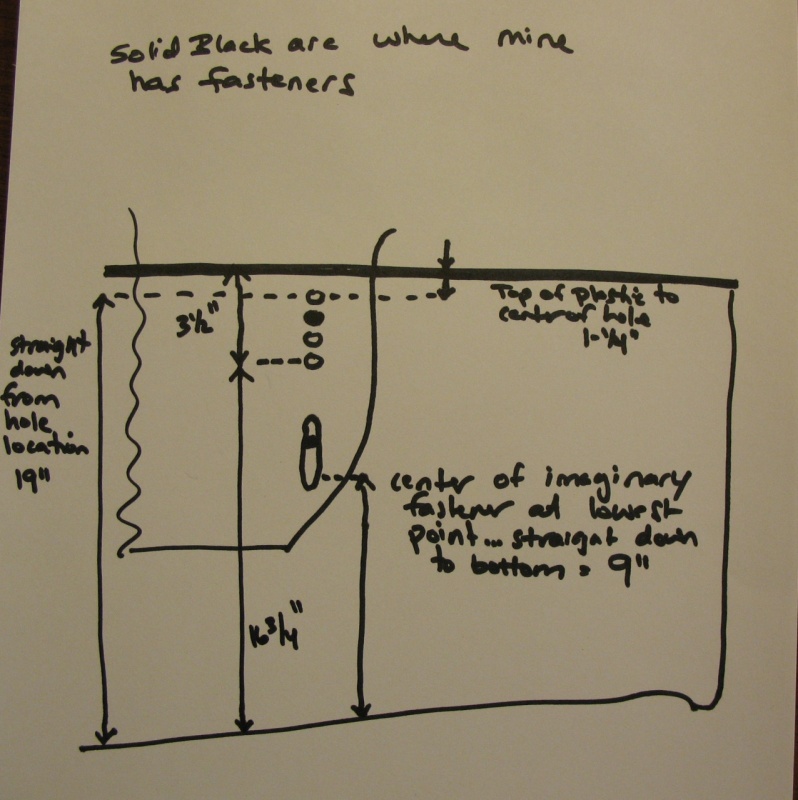 Solid Black are where mine
has fasteners
3½"
Top of plastic to
center of hole
1-¼"
straight
down
from
hole
location
19"
center of imaginary
fastener at lowest
point... straight down
to bottom = 9"
16¾"